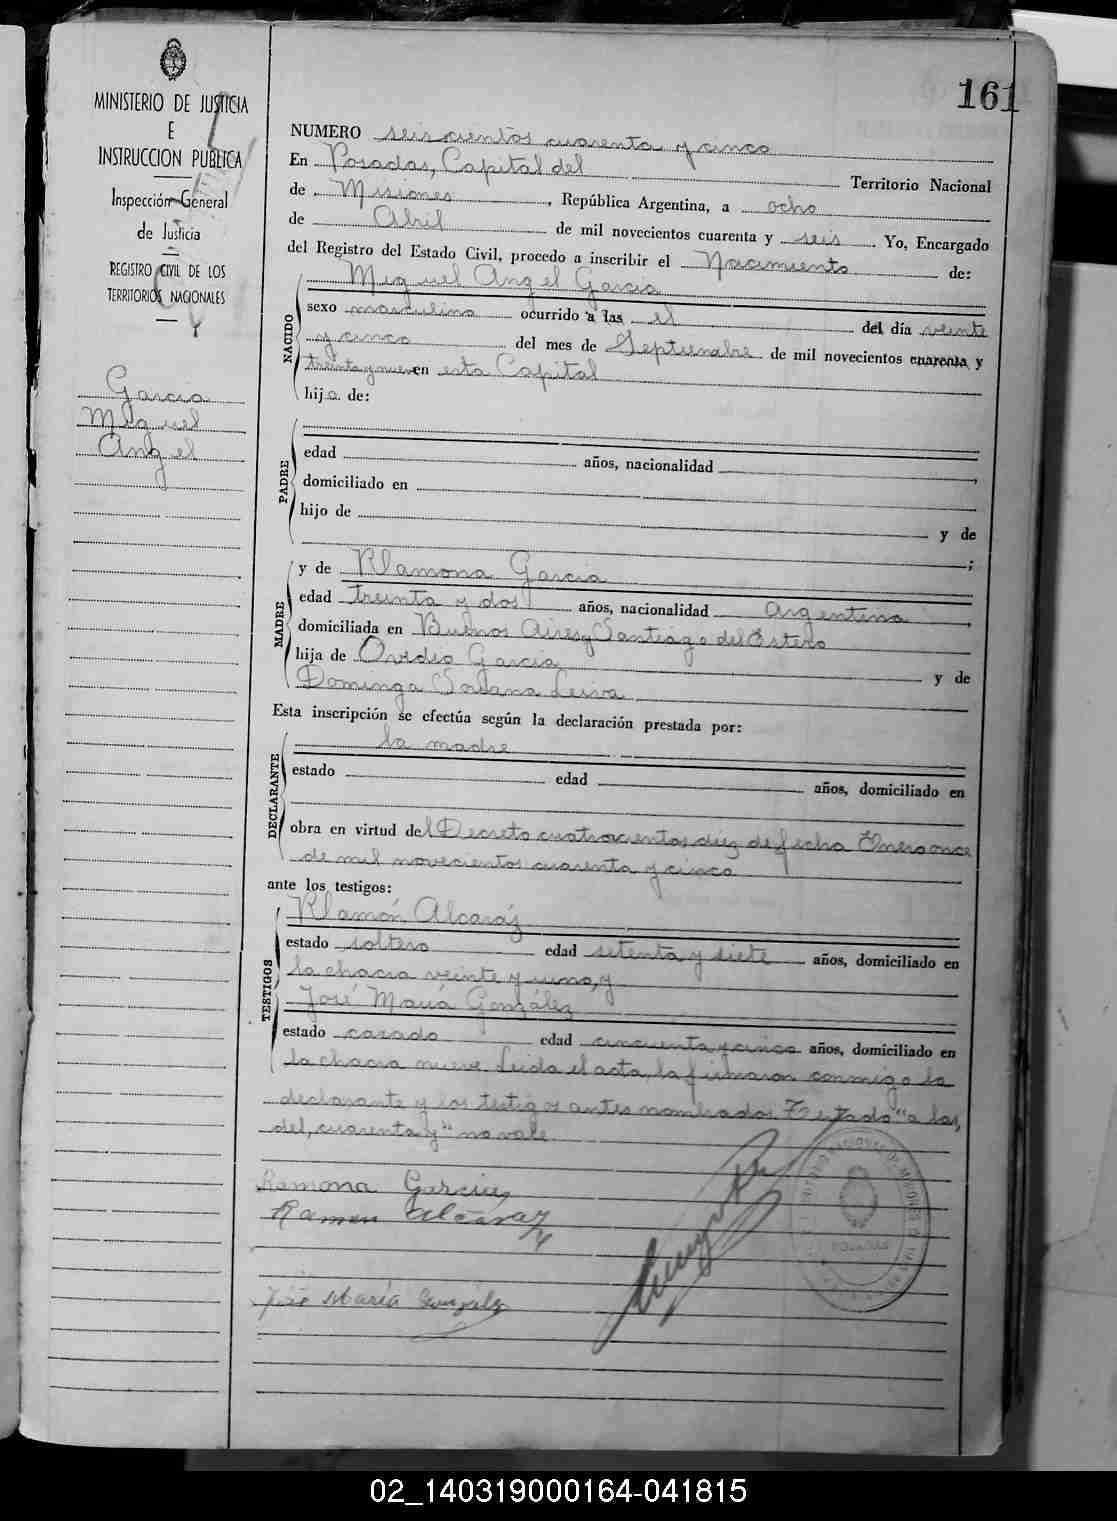 161
MINISTERIO DE JUSTICIA
E
INSTRUCCION PUBLICA
Inspección General
de Justicia
REGISTRO CIVIL DE LOS
TERRITORIOS NACIONALES
Garcia
Miguel
Angel
NUMERO seiscientos cuarenta y cinco
En Posadas, Capital del Territorio Nacional
de Misiones, República Argentina, a ocho
de Abril de mil novecientos cuarenta y seis. Yo, Encargado
del Registro del Estado Civil, procedo a inscribir el Nacimiento de:
Miguel Angel Garcia
NACIDO
sexo masculino ocurrido a las el del día veinte
y cinco del mes de Septiembre de mil novecientos cuarenta y
treinta y nueve en esta Capital
hijo de:
PADRE
edad años, nacionalidad
domiciliado en
hijo de y de
;
MADRE
y de Ramona Garcia
edad treinta y dos años, nacionalidad Argentina
domiciliada en Buenos Aires y Santiago del Estero
hija de Ovidio Garcia y de
Dominga Leiva
Esta inscripción se efectúa según la declaración prestada por:
la madre
DECLARANTE
estado edad años, domiciliado en
obra en virtud del Decreto cuatrocientos diez de fecha Enero once
de mil novecientos cuarenta y cinco
ante los testigos:
TESTIGOS
Ramón Alcaráz
estado soltero edad setenta y siete años, domiciliado en
la chacra veinte y uno, y
José María González
estado casado edad cincuenta y cinco años, domiciliado en
la chacra nueve. Leida el acta, la firmaron conmigo la
declarante y los testigos antes nombrados. Testado "a las,
del, cuarenta y" no vale.
Ramona Garcia
Ramon Alcaraz
José María González
02_140319000164-041815